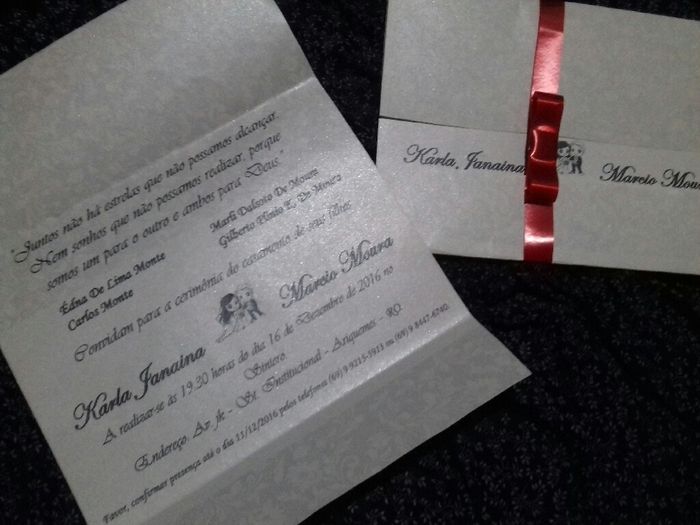 "Juntos não há estrelas que não possamos alcançar.
Nem sonhos que não possamos realizar, porque
somos um para o outro e ambos para Deus."
Édna De Lima Monte
Carlos Monte
Marli Dalsoto De Moura
Gilberto Elinto De Moura
Convidam para a cerimônia do casamento de seus filhos
Karla Janaina
Marcio Moura
A realizar-se às 19:30 horas do dia 16 de Dezembro de 2016 no
Sintero.
Endereço: Av. Jk - St. Institucional - Ariquemes - RO.
Favor, confirmar presença até o dia 11/12/2016 pelos telefones (69) 9 9215-5913 ou (69) 9 8447-6740.
Karla Janaina
Marcio Mou